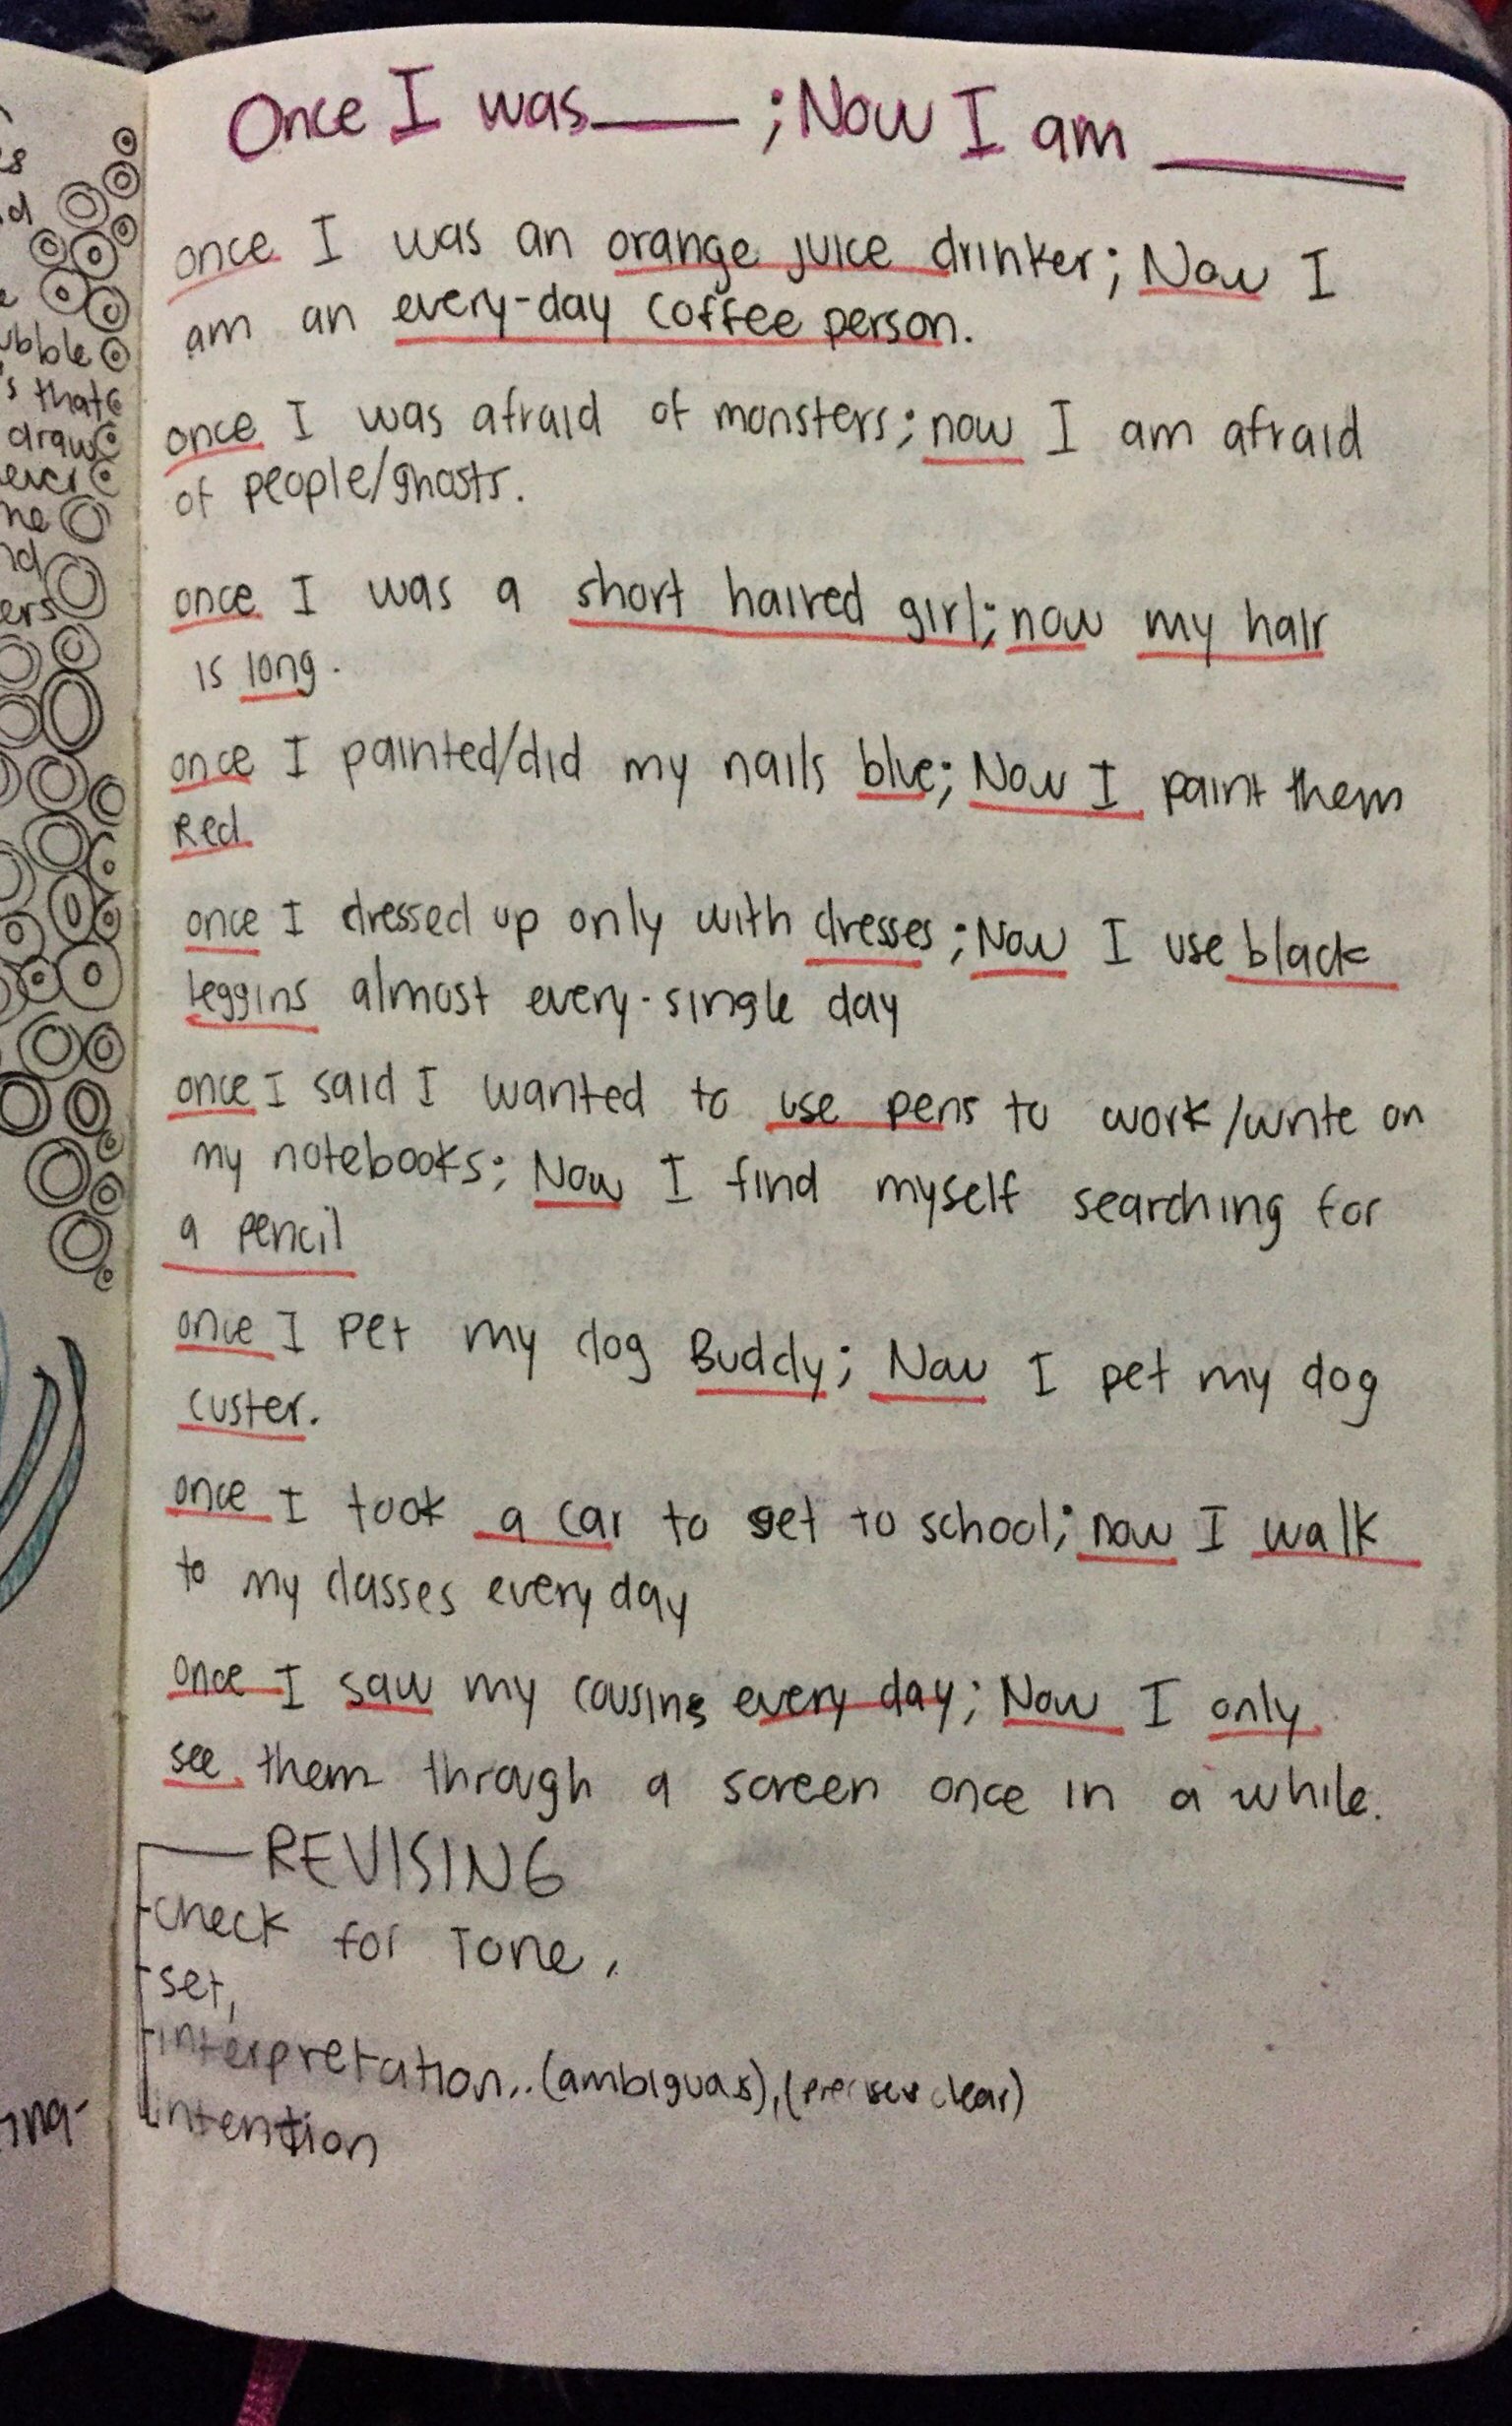 Once I was____ ; Now I am ____
once I was an orange juice drinker; Now I
am an every-day coffee person.
once I was afraid of monsters; now I am afraid
of people/ghosts.
once I was a short haired girl; now my hair
is long.
once I painted/did my nails blue; Now I paint them
Red
once I dressed up only with dresses; Now I use black
leggins almost every-single day
once I said I wanted to use pens to work/write on
my notebooks; Now I find myself searching for
a pencil
once I pet my dog Buddy; Now I pet my dog
custer.
once I took a car to get to school; now I walk
to my classes every day
once I saw my cousins every day; Now I only
see them through a screen once in a while.
REVISING
-check for Tone,
-set,
-interpretation..(ambiguas),( clear)
-intention
ubble
s that
draw
ever